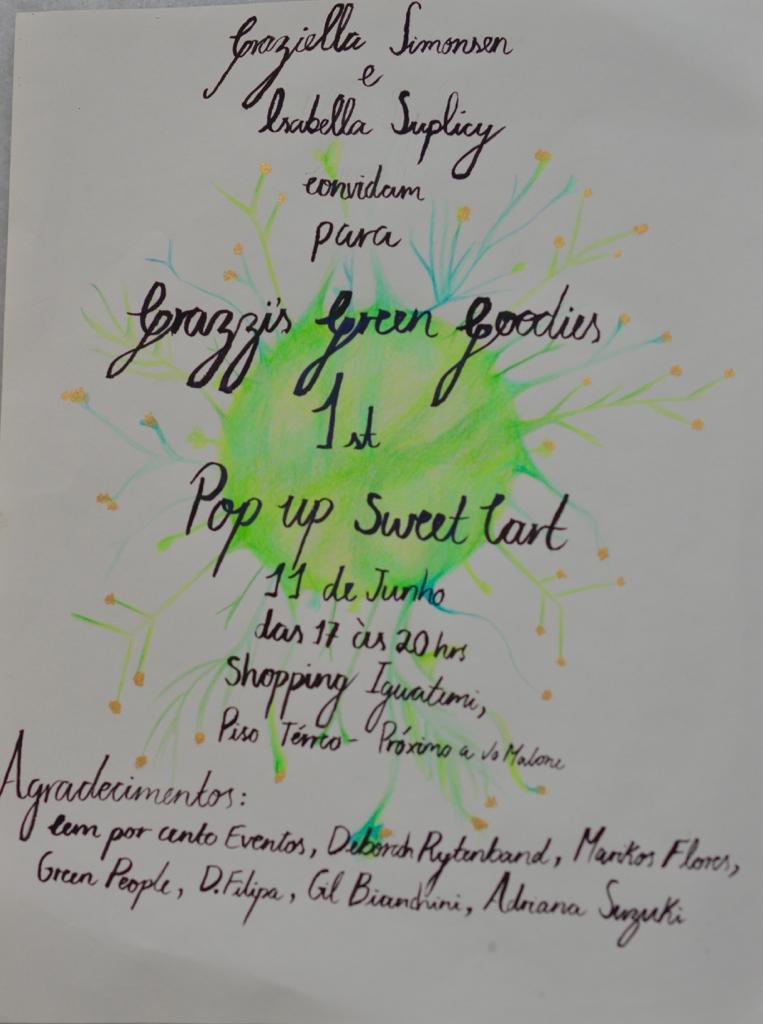 Graziella Simonsen
e
Isabella Suplicy
convidam
para
Grazzi's Green Goodies
1st
Pop up Sweet Cart
11 de Junho
das 17 às 20 hrs
Shopping Iguatemi,
Piso Térreo - Próximo a Jo Malone
Agradecimentos:
Cem por cento Eventos, Deborah Rytenband, Marikos Flores,
Green People, D. Filipa, Gil Bianchini, Adriana Suzuki